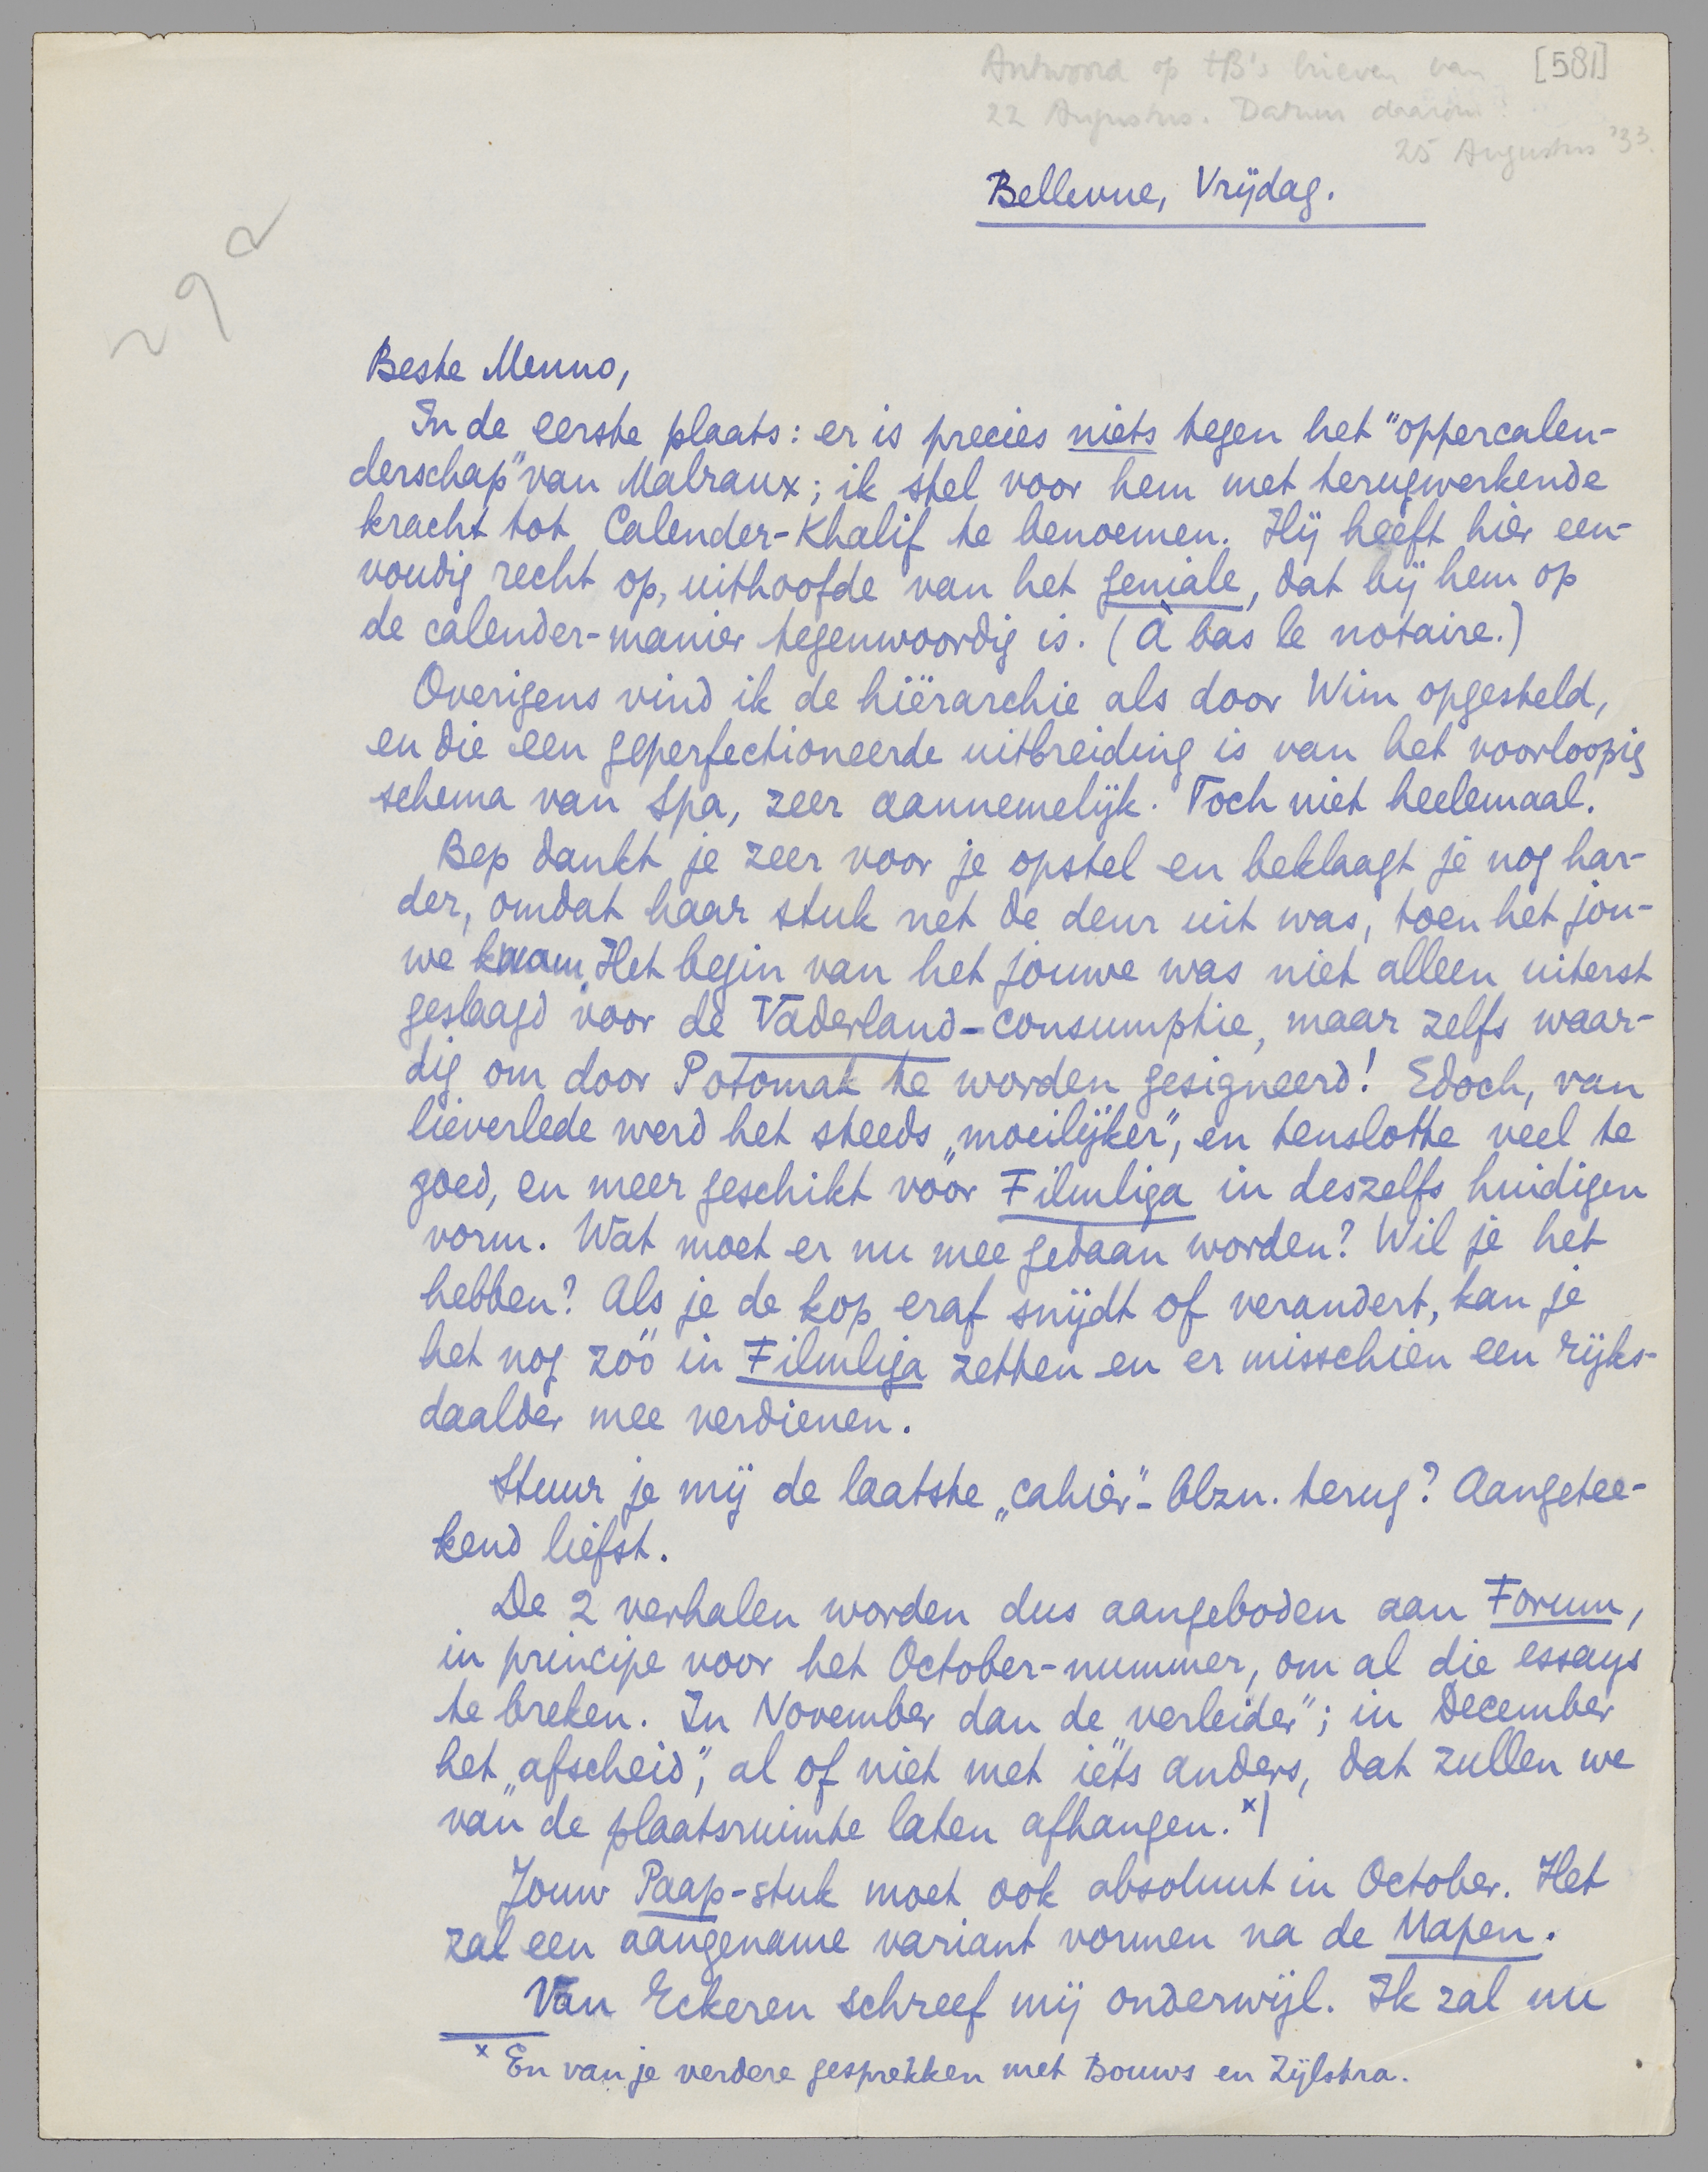 Antwoord op tB's brieven van [581]
22 Augustus. Datum daarom:
25 Augustus '33.
Bellevue, Vrijdag.
292
Beste Menno,
In de eerste plaats: er is precies niets tegen het "oppercalen-
derschap" van Malraux; ik stel voor hem met terugwerkende
kracht tot Calender-Khalif te benoemen. Hij heeft hier een-
voudig recht op, uithoofde van het geniale, dat bij hem op
de calender-manier tegenwoordig is. (À bas le notaire.)
Overigens vind ik de hiërarchie als door Wim opgesteld,
en die een geperfectioneerde uitbreiding is van het voorloopig
schema van Spa, zeer aannemelijk. Toch niet heelemaal.
Bep dankt je zeer voor je opstel en beklaagt je nog har-
der, omdat haar stuk net de deur uit was, toen het jou-
we kwam. Het begin van het jouwe was niet alleen uiterst
geslaagd voor de Vaderland-consumptie, maar zelfs waar-
dig om door Potomak te worden gesigneerd! Edoch, van
lieverlede werd het steeds „moeilijker", en tenslotte veel te
goed, en meer geschikt voor Filmliga in deszelfs huidigen
vorm. Wat moet er nu mee gedaan worden? Wil je het
hebben? Als je de kop eraf snijdt of verandert, kan je
het nog zóó in Filmliga zetten en er misschien een rijks-
daalder mee verdienen.
Stuur je mij de laatste „cahier"-blzn. terug? Aangetee-
kend liefst.
De 2 verhalen worden dus aangeboden aan Forum,
in principe voor het October-nummer, om al die essays
te breken. In November dan de „verleider"; in December
het „afscheid", al of niet met iets anders, dat zullen we
van de plaatsruimte laten afhangen. x)
Jouw Paap-stuk moet ook absoluut in October. Het
zal een aangename variant vormen na de Uapen.
Van Eckeren schreef mij onderwijl. Ik zal nu
x En van je verdere gesprekken met Bouws en Zijlstra.